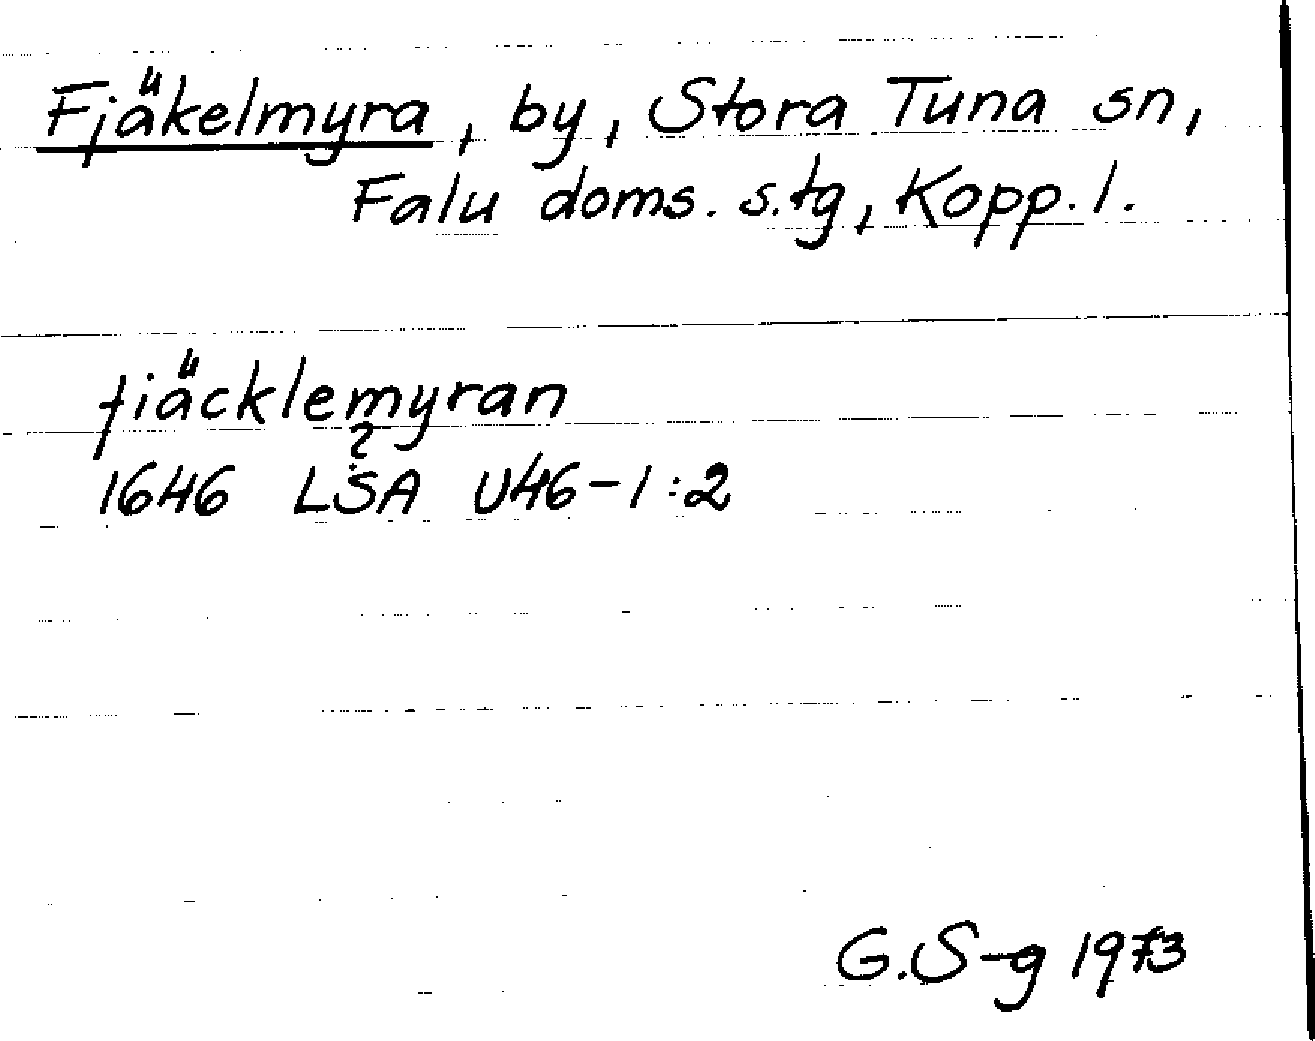 Fjäkelmyra, by, Stora Tuna sn,
Falu doms. s.tg, Kopp. l.
fiäcklemyran
?
1646 LSA U46-1:2
G.S-g 1973